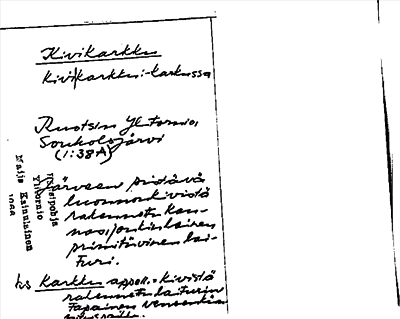 Kivikarkku
Kivi|karkku: -karkussa
Ruotsin Yl. Tornio,
Soukolojärvi
(1:38A)
Järveen pistävä
luonnonkivistä
rakennettu kan-
nas, jonkinlainen
primitiivinen lai-
turi.
ks Karkku appell. = kivistä
rakennettu laiturin
tapainen
Länsipohja
Ylitornio
Maija Kainulainen
1966